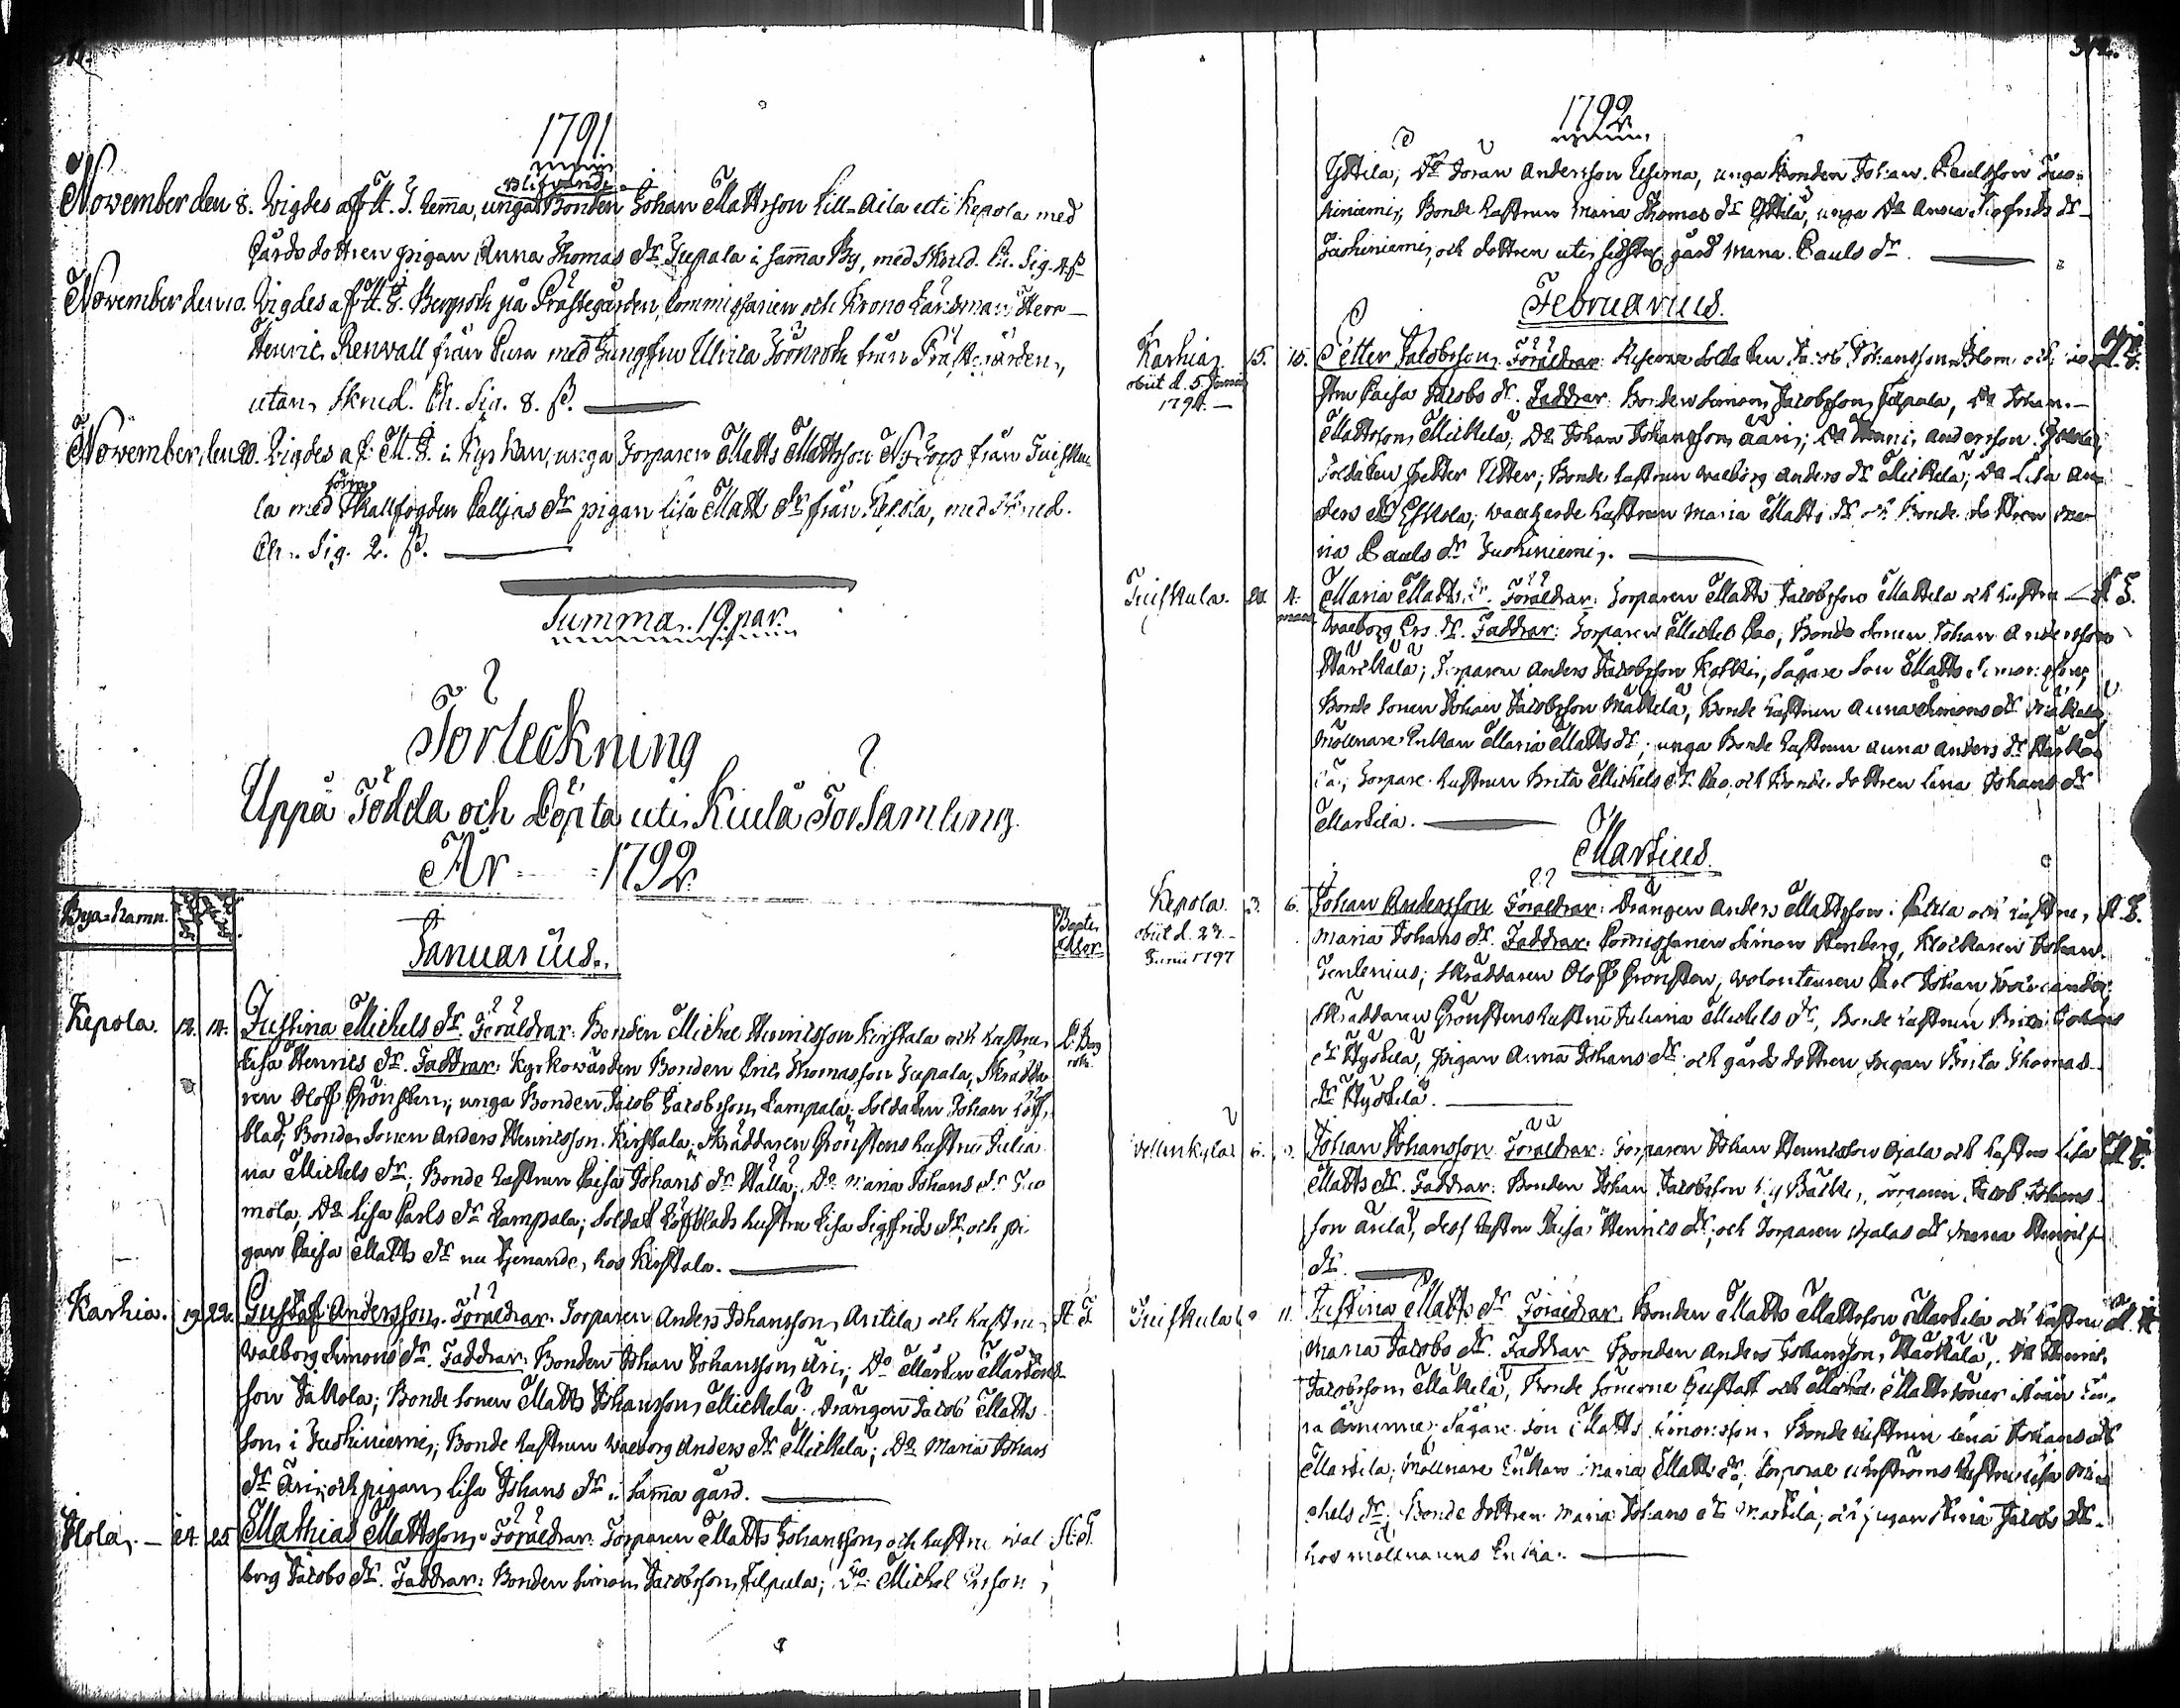 1791.
blifvande
November den 8. Vigdes af H. J. Lemma, unga Bonden Johan Mattsson Lill-Aila uti Kepola med
Gårds dottren pigan Anna Thomas dr. Jupala i samma By, med Skrud. Ch. Sig. 4 ß
November den 10. Vigdes af H. G. Bergroth på Prästegården, Commissarien och Krono Länsman Herr
Henric Renwall från Eura med Jungfru Ulrica Forsroth från Prästegården,
utan Skrud. Ch. Sig. 8. ß.
November den 20. Vigdes af M. G. i Kyrkan, unga Torparen Matts Mattsson Ny Torp från Tuisku
la med Skallfogden Calljas dr pigan Lisa Matts dr från Kepola, med Skrud.
Ch. Sig. 2. ß.
Summa. 19. par.
Förteckning
Uppå Födda och Döpta uti Kiula Församling
År 1792.
Bya-Namn.
Bapti-
sator.
Januarius.
Kepola. 12. 14. Justina Michels dr. Föräldrar: Bonden Michel Henricsson Kirstala och hustru
Lisa Henrics dr. Faddrar: Kyrkowärden Bonden Eric Thomasson Jupala, Skräddar
ren Olof Grönsten; unga Bonden Jacob Jacobsson Lampala; Soldaten Johan Löf
blad; Bonde Sonen Anders Henricsson Kirstala; Skräddaren Grönstens hustru Julia
na Michels dr; Bonde hustrun Caisa Johans dr Walla; Do Maria Johans dr Tuo
mola; Do Lisa Carls dr Lampala; Soldat Löfblads hustru Lisa Sigfrids dr, och pi
gan Caisa Matts dr nu tjenande hos Kirstala.
Karhia. 19. 22. Gustaf Andersson. Föräldrar: Torparen Anders Johansson Antila och hustru
Walborg Simons dr. Faddrar: Bonden Johan Johansson Äri; Do Mårten Mårtens
son Jakola; Bonde Sonen Matts Johansson Mickela. Drängen Jacob Matts
son i Juohiniemi; Bonde hustrun Walborg Anders dr Mickela; Do Maria Johans
dr Äri; och pigan Lisa Johans dr i samma gård.
24. 25. Mathias Mattsson. Föräldrar: Torparen Matts Johansson och hustru Wal
borg Jacobs dr. Faddrar: Bonden Simon Jacobsson Filpula; Do Michel Ersson
1792.
Yttila; Do Göran Andersson Uksima, unga Bonden Johan Paulsson Juo-
hiniemi, Bonde hustrun Maria Thomas dr Yttila, unga Do Anna Sigfrids dr
Juohiniemi, och dottren uti sidstn. gård Maria Pauls dr.
Februarius.
Karhia. 15. 15. Petter Jacobsson. Föräldrar: Reserve Soldaten Jacob Johansson Blom och hu
obiit d. 5. Januarii
1794.
stru Caisa Jacobs dr. Faddrar: Bonden Simon Jacobsson Filpula, Do Johan
Mattsson Mickela; Do Johan Johansson Ääri; Do Henric Andersson
Soldaten Petter Utter; Bonde hustrun Walborg Anders dr Mickela; Do Lisa An
ders dr Eskola; hustrun Maria Matts dr och Bonde dottren Ma
ria Pauls dr Juohiniemi.
Tuiskula. 4. Maria Matts dr. Föräldrar: Torparen Matts Jacobsson Mattila och hustru
Walborg Ers dr. Faddrar: Torparen Michel Pao; Bonde Sonen Johan Andersson
Härkälä; Torparen Anders Jacobsson Koski, Sågare Son Matts Simonsson,
Bonde Sonen Johan Jacobsson Mäkelä, Bonde hustrun Anna Simons dr Mäkelä,
Möllnare Enkan Maria Matts dr; unga Bonde hustrun Anna Anders dr Härkä
lä; Torpare hustrun Brita Michels dr Pao, och Bonde dottren Lena Johans dr
Martila.
Martius.
Kepola. 3. 6. Johan Andersson. Föräldrar: Drängen Anders Mattsson i och hustru
obiit d. 27.
Junii 1797
Maria Johans dr. Faddrar: Commissarien Simon Stenberg, Klockaren Johan
Gentenius; Skräddaren Olof Grönsten, Volonteuren Carl Johan
Skräddaren Grönstens hustru Juliana Michels dr, Bonde hustrun Brita Johans
dr Hyskelä, pigan Anna Johans dr och gårds dottren pigan Brita Thomas
dr Hyskelä.
Vellinkylä. Johan Johansson. Föräldrar: Torparen Johan Henricsson Ojala och hustru Lisa
Matts dr. Faddrar: Bonden Johan Jacobsson Torparen Jacob Johans
son dess hustru Caisa Henrics dr; och Torparen Ojalas dr Maria Henrics
dr.
Tuiskula. 11. Justina Matts dr. Föräldrar: Bonden Matts Mattsson Martila och hustru
Maria Jacobs dr. Faddrar: Bonden Anders Johansson Härkälä, Do Henric
Jacobsson Mäkelä, Bonde Sönerne Gustaf och Michel Matts söner
Sågare Son Matts Simonsson. Bonde hustrun Lena Johans dr
Martila; Möllnare Enkan Maria Matts dr; Corporal hustru Lisa Mi
chels dr; Bonde dottren Maria Johans dr Martila; och pigan Jacobs dr
hos Möllnarens Enka.